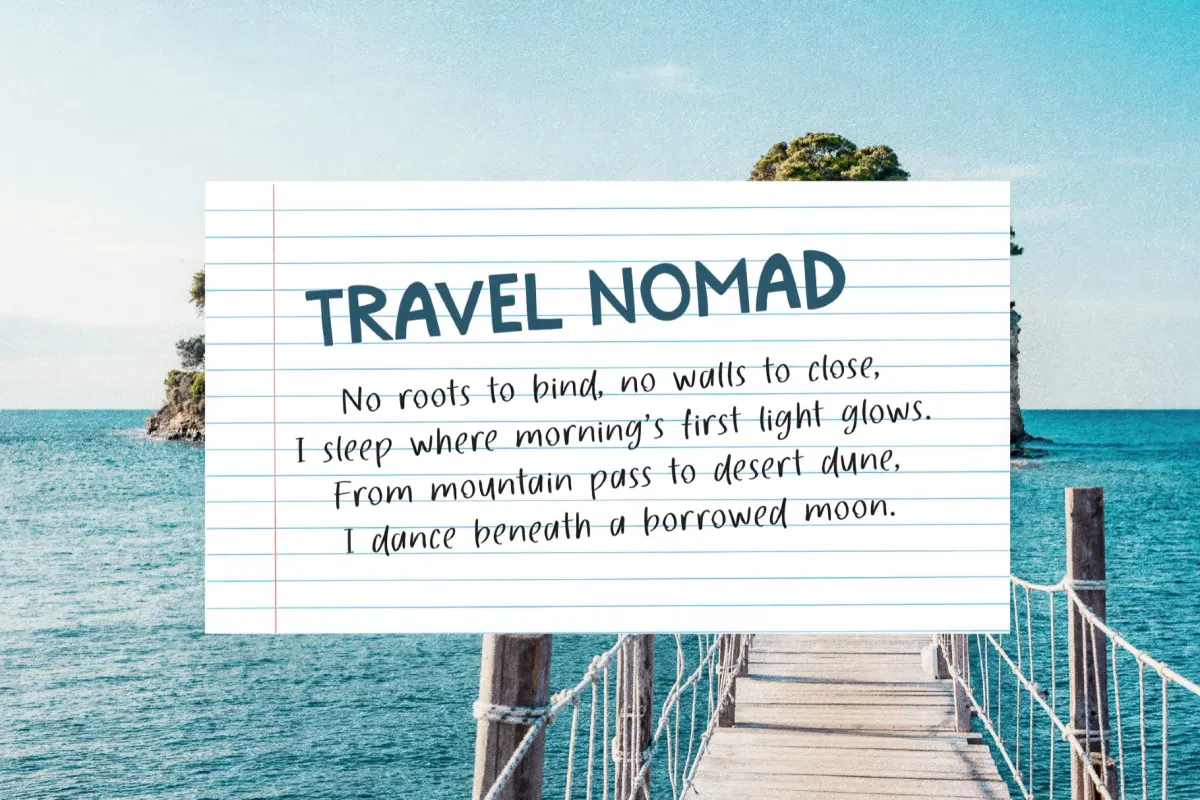 TRAVEL NOMAD
No roots to bind, no walls to close,
I sleep where morning's first light glows.
From mountain pass to desert dune,
I dance beneath a borrowed moon.